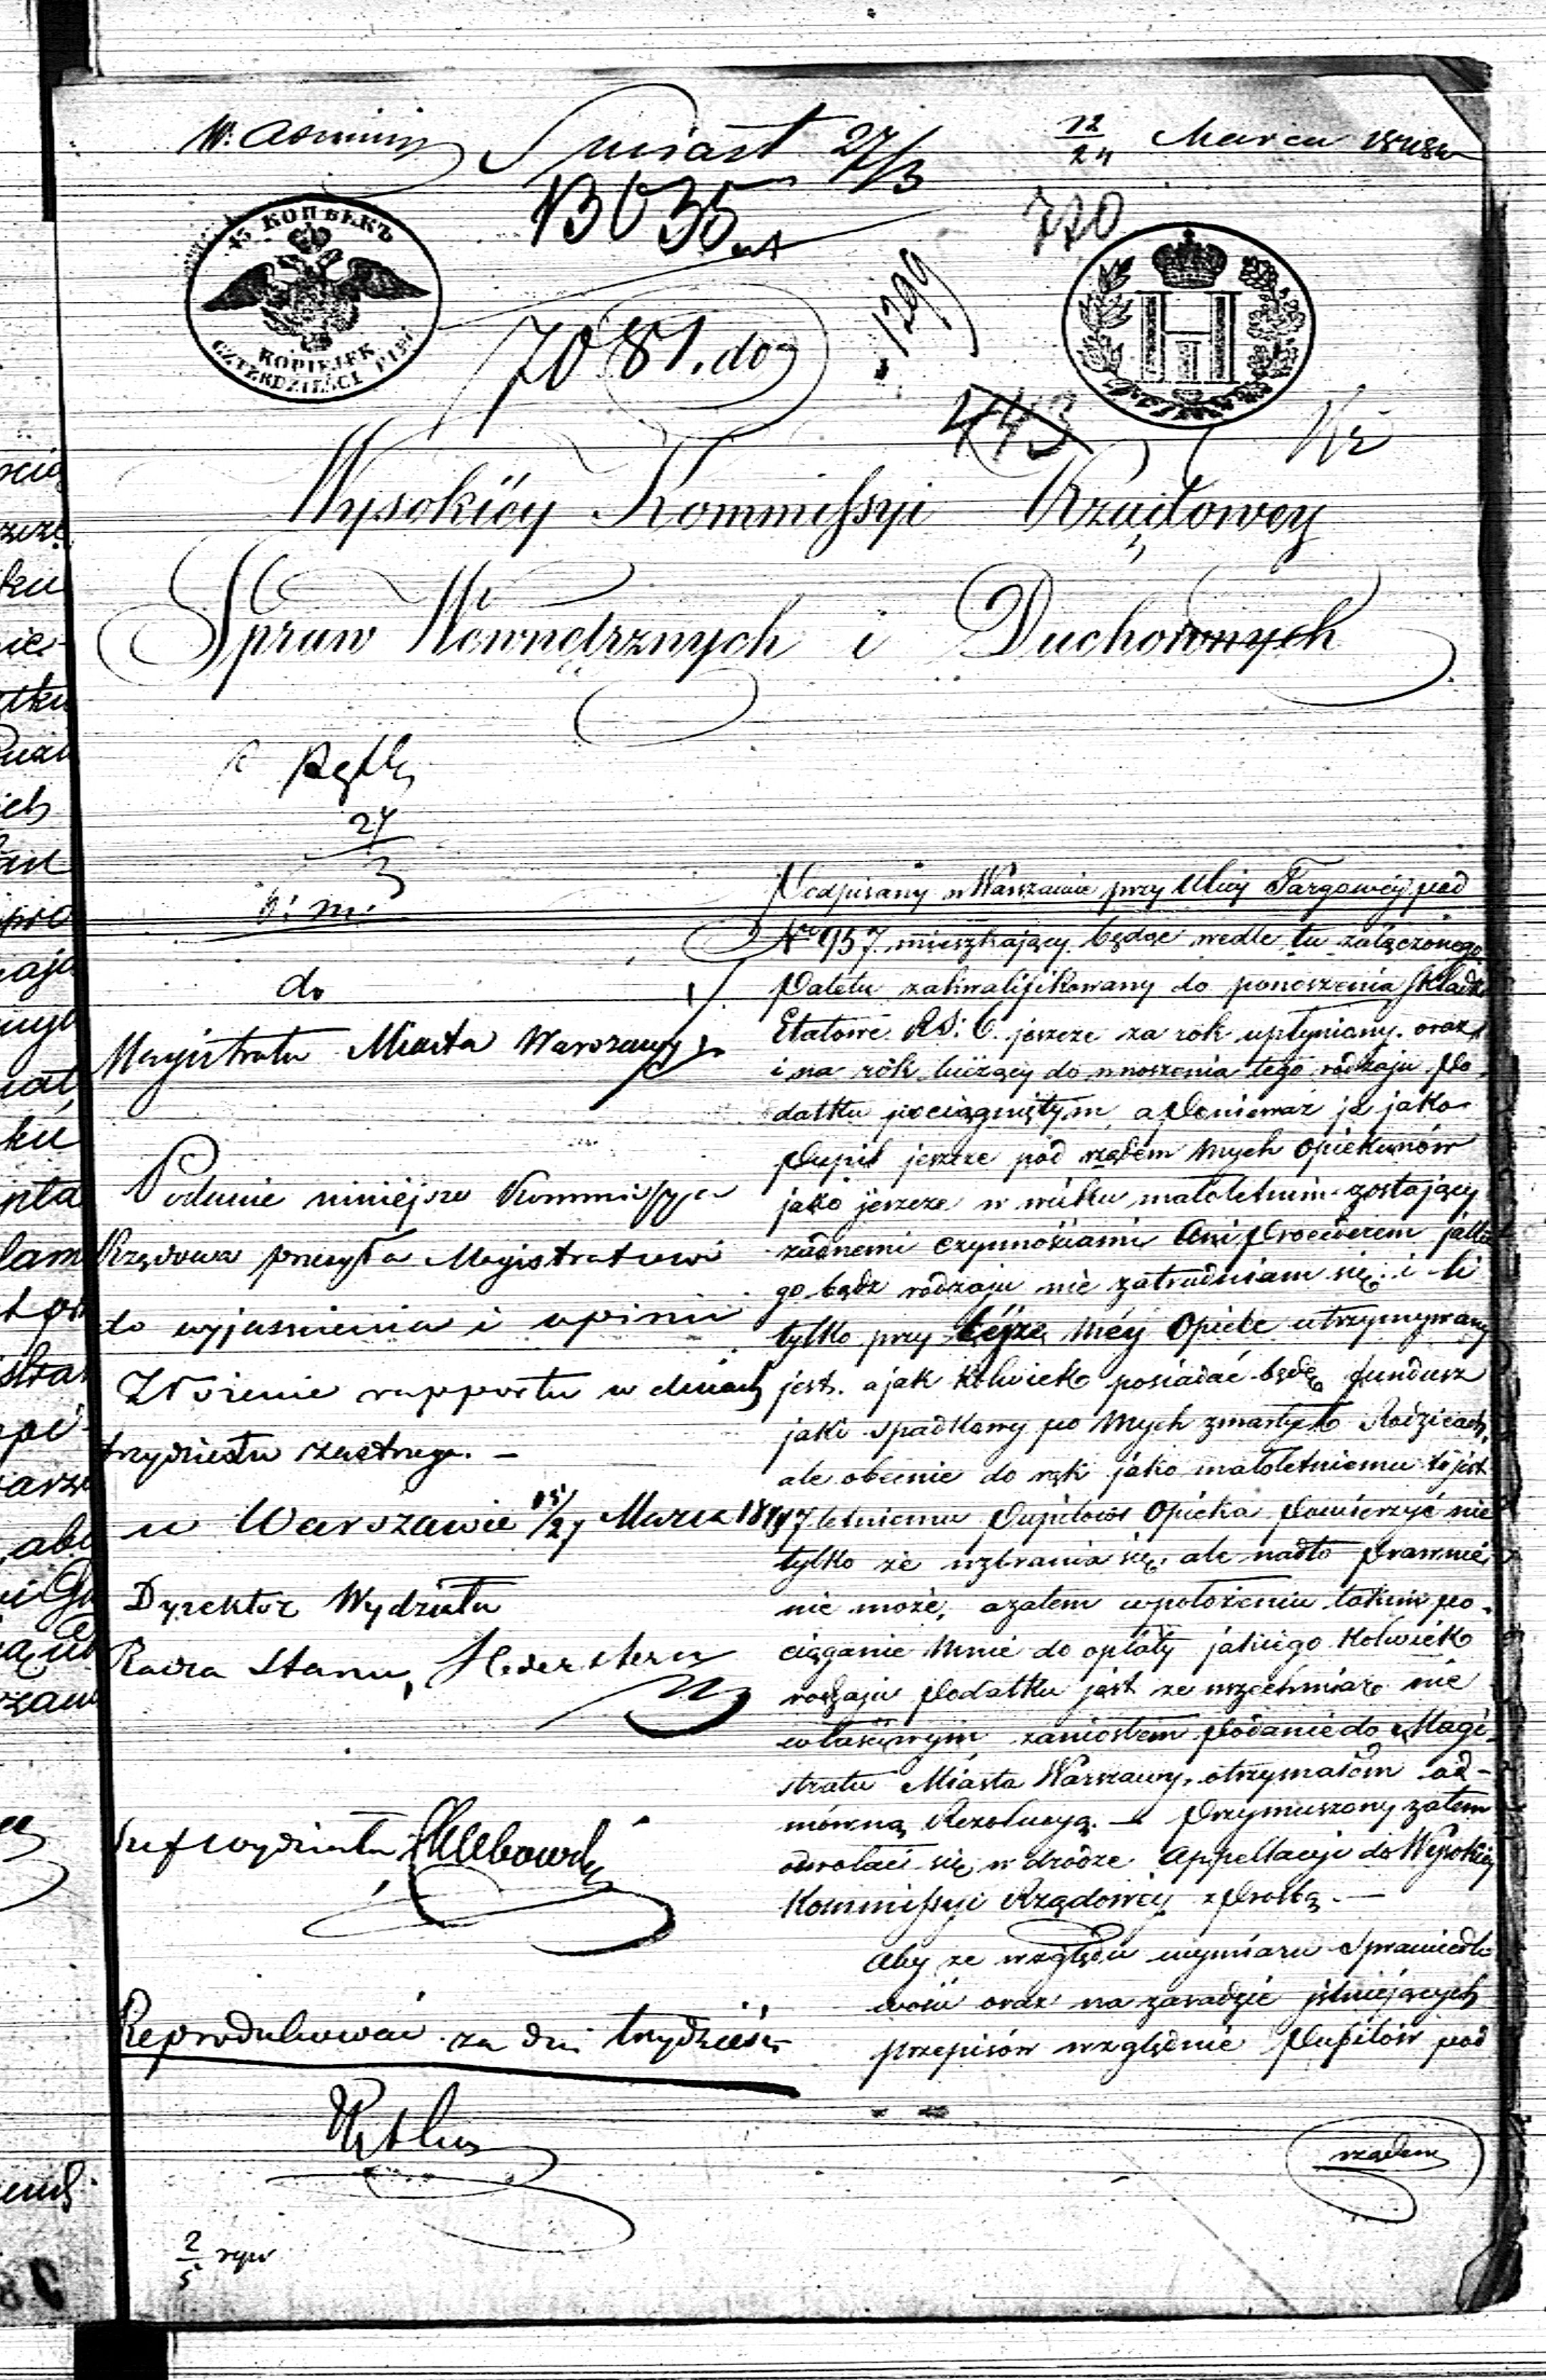 S miast 27/3
12/24 Marca 1848
13035
770
45 КОПѢЕКЪ
KOPIEJEK
CZTERDZIEŚCI PIĘĆ
7081. dog
1299
443
Wysokiéy Kommissyi Rządowey
Spraw Wewnętrznych i Duchownych
27
3
do
Magistratu Miasta Warszawy
Podanie niniejsze Kommissyja
Rządowa przesyła Magistratowi
do wyjaśnienia i opinii
Złożenie rapportu w dniach
trzydziestu zastrzega. –
w Warszawie 15/27 Marca 184
Dyrektor Wydziału
Radca Stanu,
Szef Wydziału
Reprodukować za dni trzydzieści
2/5
Podpisany w Warszawie przy Ulicy Targowéy pod
No 957 mieszkający będąc wedle tu załączonego
Patetu zakwalifikowany do ponoszenia Składki
Etatowe RS: 6. jeszcze za rok upłyniony. oraz
i na rók bieżący do wnoszenia tego rodzaju Po
datku pociągniętym, a Ponieważ ja jako
Pupil jeszcze pód rządem mych Opiekunów
jako jeszcze w wieku małoletnim zostający
żadnemi czynnościami Ani Procederem jakie
go bądz rodzaju nie zatrudniam się. i li
tylko przy téjże méy Opiece utrzymywany
jest. a jak kolwiek posiadać będę fundusz
jaki spadkowy po Mych zmarłych Rodzicach,
ale obecnie do rąk jako małoletniemu to jest
17 letniemu Pupilowi Opieka Powierzyć nie
tylko że wzbrania się, ale nadto Prawnie
nie może, a zatem w położeniu takim po
ciąganie Mnie do opłaty jakiego kolwiek
rodzaju Podatku jest ze wszechmiar nie
właściwym zaniosłem Podanie do Magi
stratu Miasta Warszawy, otrzymałem od-
mówną Rezolucyą. — Przymuszony zatem
odwołać się w drodze Appellacyi do Wysokiéy
Kommissyi Rządowéy z Prośbą. —
Aby ze względu wymiaru Sprawiedli
wości oraz na zasadzie jstniejących
przepisów względnie Pupilów pod
rządem